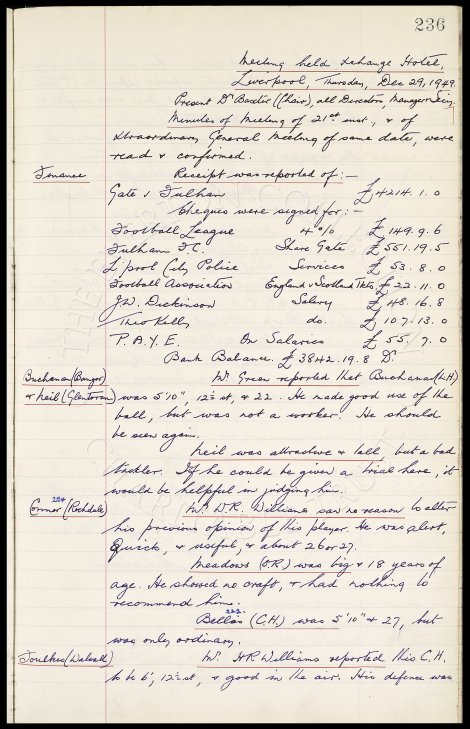 236
Meeting held Exchange Hotel,
Liverpool, Thursday, Dec 29, 1949.
Present Dr Baxter (Chair), all Directors, Manager & Secy.
Minutes of Meeting of 21st inst., & of
Extraordinary General Meeting of same date, were
read & confirmed.
Finance Receipt was reported of:-
Gate v Fulham £4214. 1. 0
Cheques were signed for:-
Football League 4% £149. 9. 6
Fulham F.C. Share Gate £551. 19. 5
L'pool City Police Services £53. 8. 0
Football Association England v Scotland Tkts. £22. 11. 0
J.W. Dickinson Salary £48. 16. 8
Theo Kelly do. £107. 13. 0
P.A.Y.E. On Salaries £55. 7. 0
Bank Balance. £3842. 19. 8 Dr.
Buchanan (Bangor) Mr. Green reported that Buchanan (L.H.)
& Neil (Glentoran) was 5'10", 12½ st, & 22. He made good use of the
ball, but was not a worker. He should
be seen again.
Neil was attractive & tall, but a bad
tackler. If he could be given a trial here, it
would be helpful in judging him.
224
Connor (Rochdale) Mr. W.R. Williams saw no reason to alter
his previous opinion of this player. He was alert,
Quick, & useful, & about 26 or 27.
Meadows (O.R.) was big & 18 years of
age. He showed no craft, & had nothing to
recommend him.
222
Bellas (C.H.) was 5'10" & 27, but
was only ordinary.
Foulkes (Walsall) Mr. H.R. Williams reported this C.H.
to be 6', 12½ st, & good in the air. His defence was